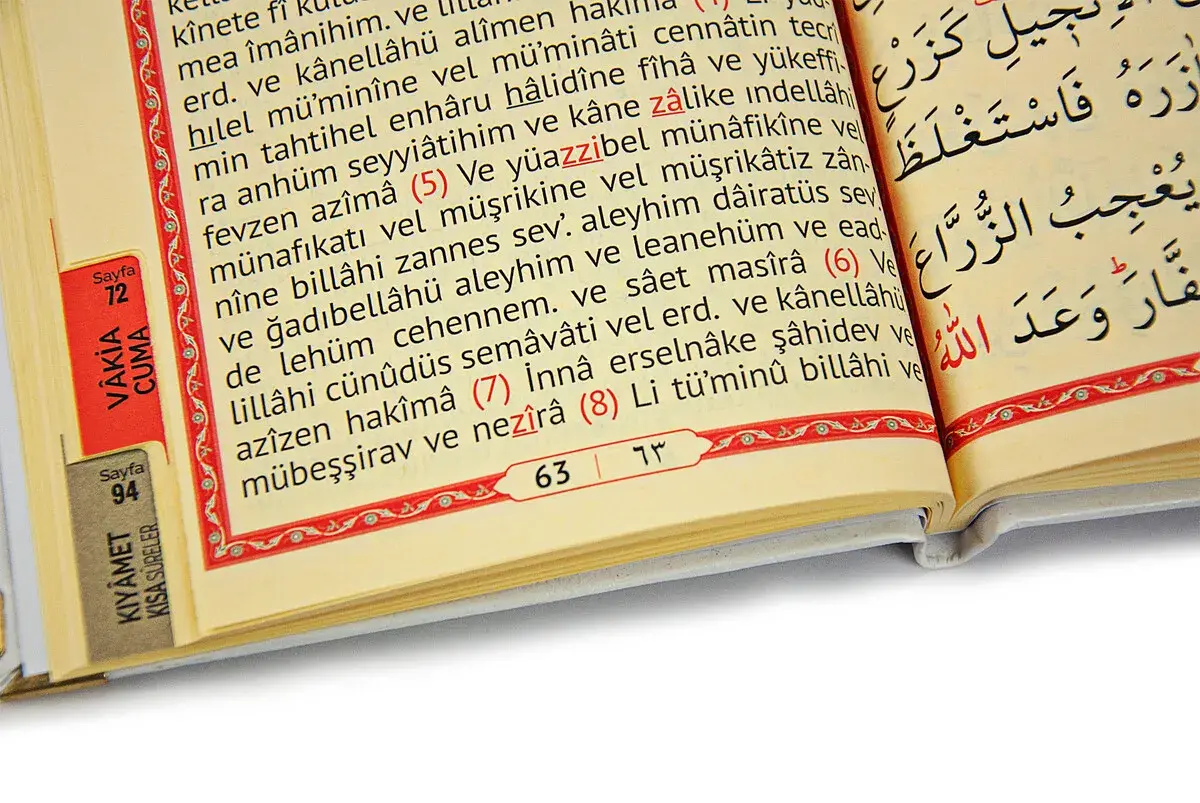 kînete fî
mea îmânihim. ve
erd. ve kânellâhü alîmen hakîmâ (4)
hılel mü’minîne vel mü’minâti cennâtin tecrî
min tahtihel enhâru hâlidîne fîhâ ve yükeffi-
ra anhüm seyyiâtihim ve kâne zâlike ındellâhi
fevzen azîmâ (5) Ve yüazzibel münâfikîne vel
münafıkatı vel müşrikine vel müşrikâtiz zân-
nîne billâhi zannes sev’. aleyhim dâiratüs sev’.
ve ğadıbellâhü aleyhim ve leanehüm ve ead-
de lehüm cehennem. ve sâet masîrâ (6) Ve
lillâhi cünûdüs semâvâti vel erd. ve kânellâhü
azîzen hakîmâ (7) İnnâ erselnâke şâhidev ve
mübeşşirav ve nezîrâ (8) Li tü’minû billâhi ve
63 | ٦٣
Sayfa
72
VÂKİA
CUMA
Sayfa
94
KIYÂMET
KISA SÛRELER
الْاِنْجٖيلِ كَزَرْعٍ
فَاسْتَغْلَظَ
يُعْجِبُ الزُّرَّاعَ
وَعَدَ اللّٰهُ